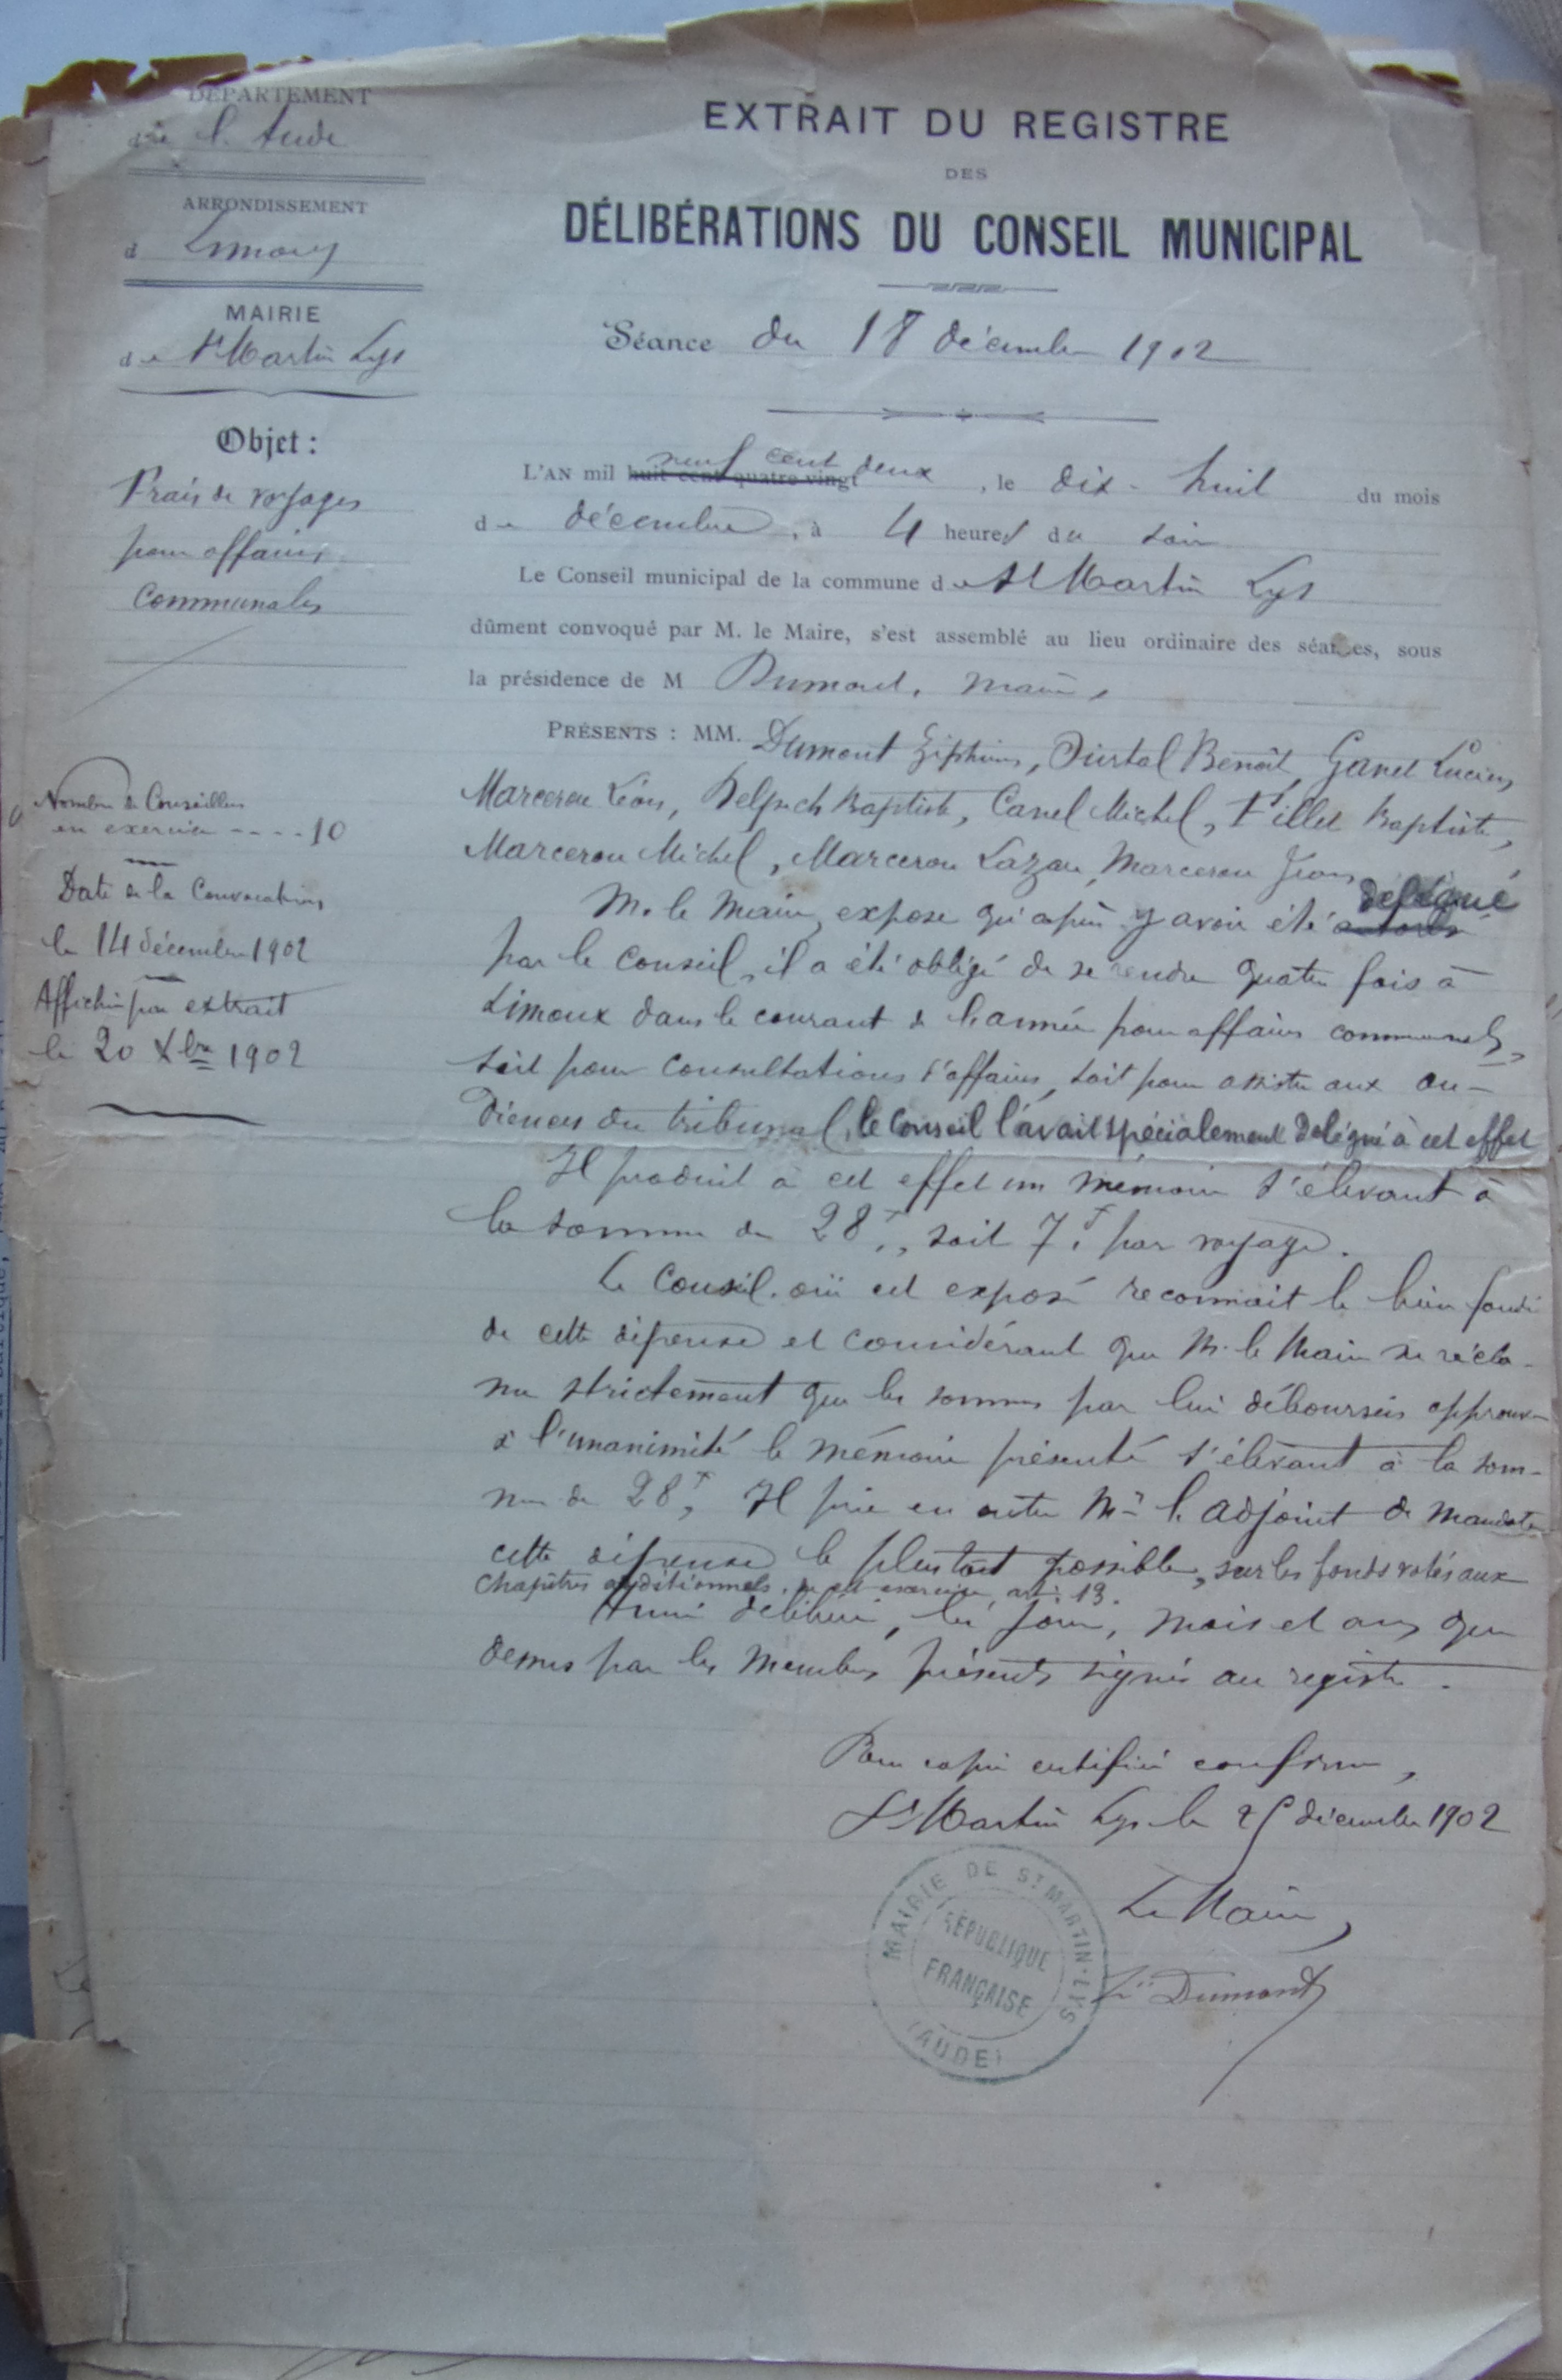 DÉPARTEMENT
de l'Aude
ARRONDISSEMENT
d Limoux
MAIRIE
de St Martin Lys
Objet :
Frais de voyages
pour affaires
communales
Nombre de Conseillers
en exercice - - - - 10
Date de la Convocation
le 14 décembre 1902
Affichée par extrait
le 20 Xbre 1902
EXTRAIT DU REGISTRE
DES
DÉLIBÉRATIONS DU CONSEIL MUNICIPAL
Séance du 18 décembre 1902
neuf cent
L'AN mil huit cent quatre vingt deux , le dix-huit du mois
de décembre , à 4 heures du soir
Le Conseil municipal de la commune de St Martin Lys
dûment convoqué par M. le Maire, s'est assemblé au lieu ordinaire des séances, sous
la présidence de M Dumont, maire,
PRÉSENTS : MM. Dumont Zéphirin, Benoît, Lucien,
Marcerou Léon, Delpech Baptiste, Canel Michel, Fillet Baptiste,
Marcerou Michel, Marcerou Lazare, Marcerou Jean
délégué
M. le Maire, expose qu'après y avoir été
par le Conseil, il a été obligé de se rendre quatre fois à
Limoux dans le courant de l'année pour affaires communales,
soit pour consultations d'affaires, soit pour assister aux au-
diences du tribunal, le Conseil l'avait spécialement délégué à cet effet
Il produit à cet effet un mémoire s'élevant à
la somme de 28f, soit 7f par voyage.
Le Conseil, ouï cet exposé reconnait le bien fondé
de cette dépense et considérant que M. le Maire ne récla-
me strictement que les sommes par lui déboursées approuve
à l'unanimité le mémoire présenté s'élevant à la som-
me de 28f, Il prie en outre Mr l'adjoint de mandater
cette dépense le plus tôt possible, sur les fonds votés aux
chapitres additionnels, de cet exercice, art. 13.
Ainsi délibéré, les jour, mois et an que
dessus par les membres présents signés au registre.
Pour copie certifiée conforme,
St Martin Lys le 25 décembre 1902
Le Maire,
Zin Dumont
MAIRIE DE ST MARTIN-LYS
RÉPUBLIQUE
FRANÇAISE
(AUDE)